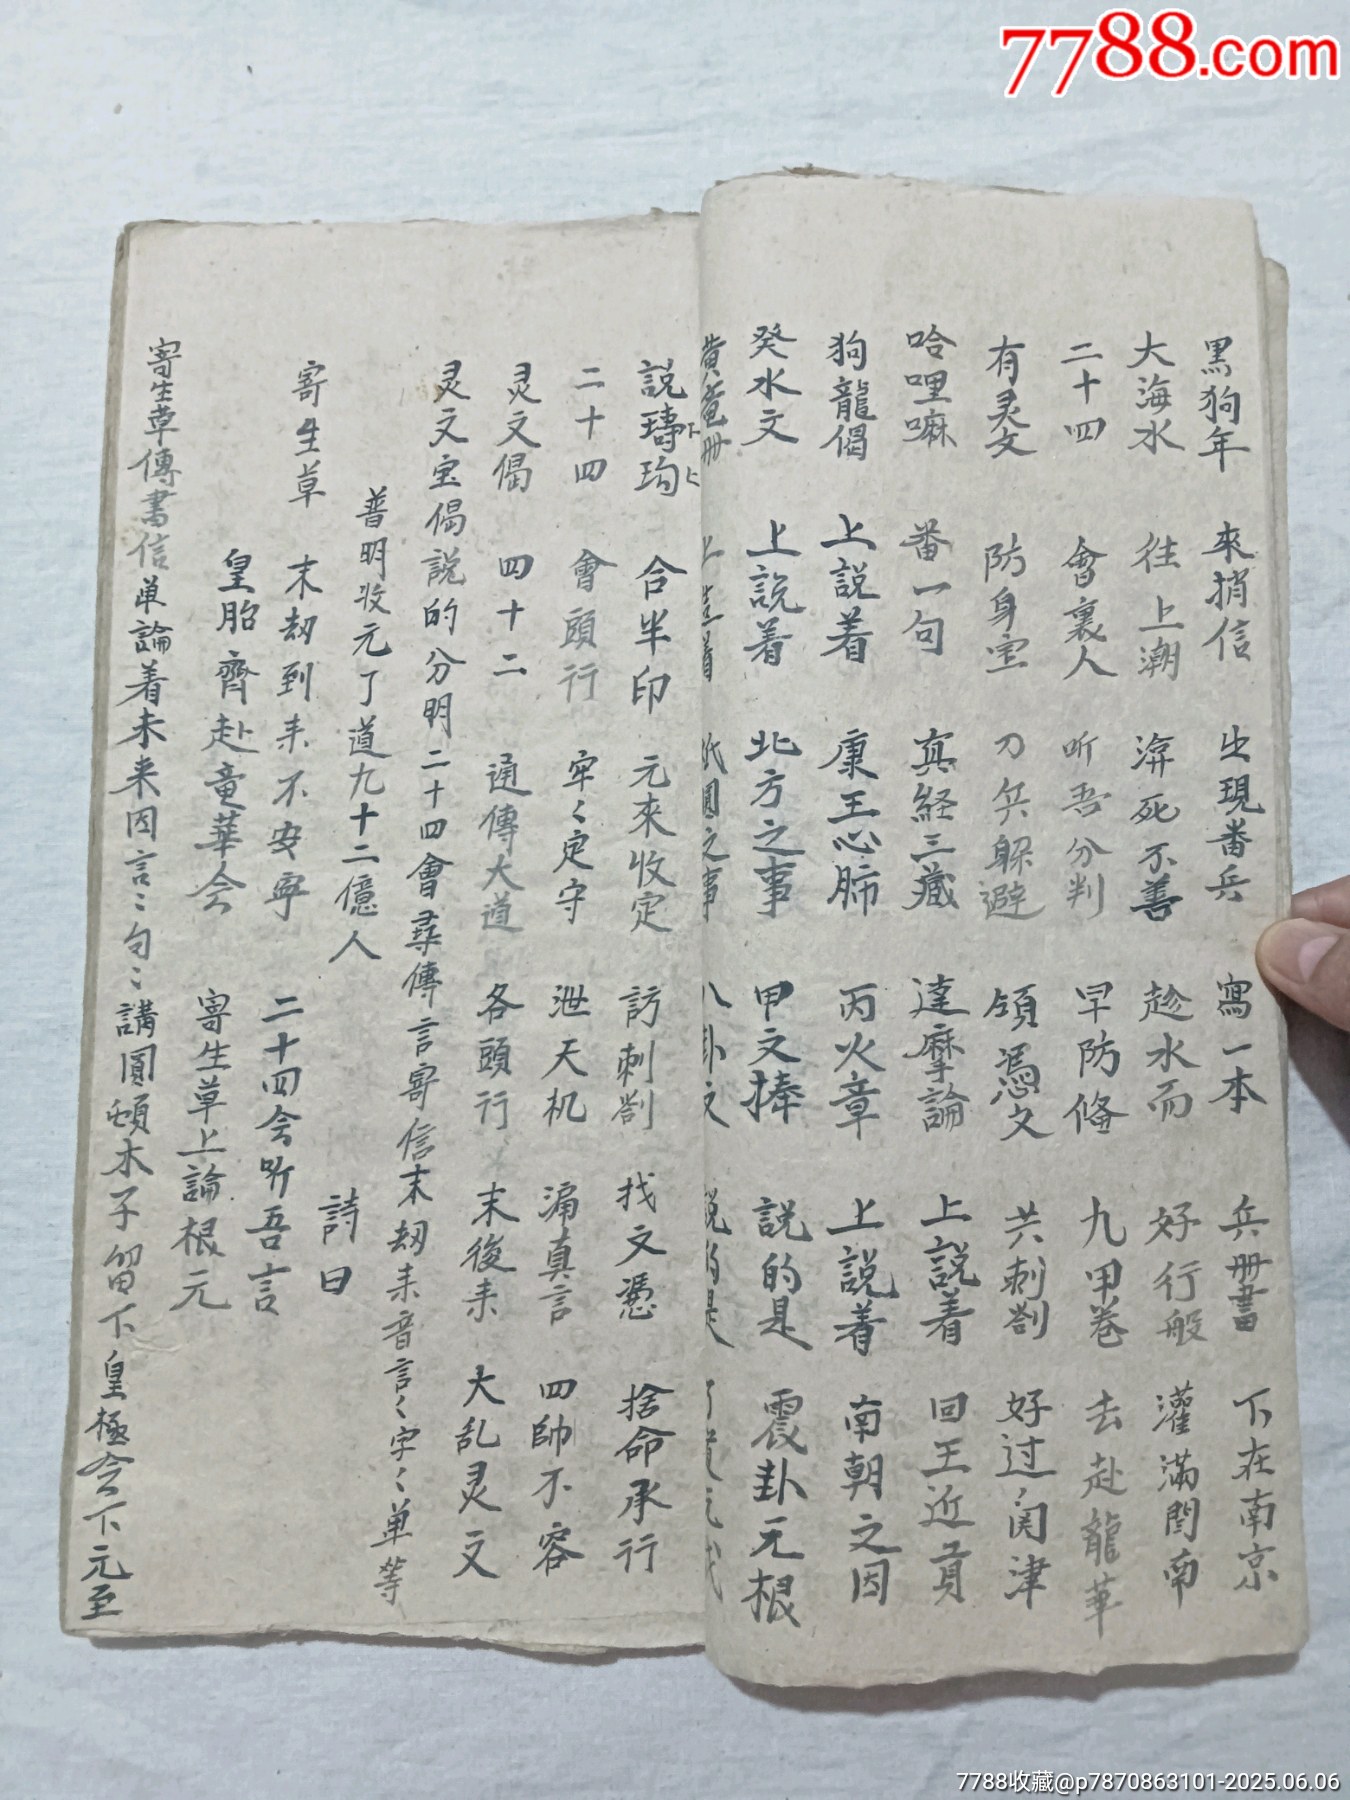 7788.com
黑狗年 來捎信 出現番兵 寫一本 兵册書 下在南京
大海水 往上潮 渰死不善 趁水而 好行般 灌滿閆南
二十四 會裏人 听吾分判 早防俻 九甲卷 去赴龍華
有灵文 防身宝 刀兵躲避 領憑文 共刺劄 好过関津
哈哩嘛 番一句 真経三藏 達摩論 上説着 回王近貢
狗龍偈 上説着 康王心肺 丙火章 上説着 南朝之因
癸水文 上説着 北方之事 甲文捧 説的是 震卦元根
黄竜册 上 着 之事 八卦文 説的是
説璹玽 合半印 元來收定 訪刺劄 找文憑 捨命承行
下上
二十四 會頭行 牢々定守 泄天机 漏真言 四帥不容
灵文偈 四十二 通傳大道 各頭行 末後来 大乱灵文
灵文宝偈説的分明二十四會尋傳言寄信末刼来音言々字々单等
普明收元了道九十二億人 詩曰
寄生草 末刼到来不安寧 二十四会听吾言
皇胎齊赴竜華会 寄生草上論根元
寄生草傳書信单論着未来因言々句々講圓 木子留下皇極会下元至
7788收藏@p7870863101-2025.06.06